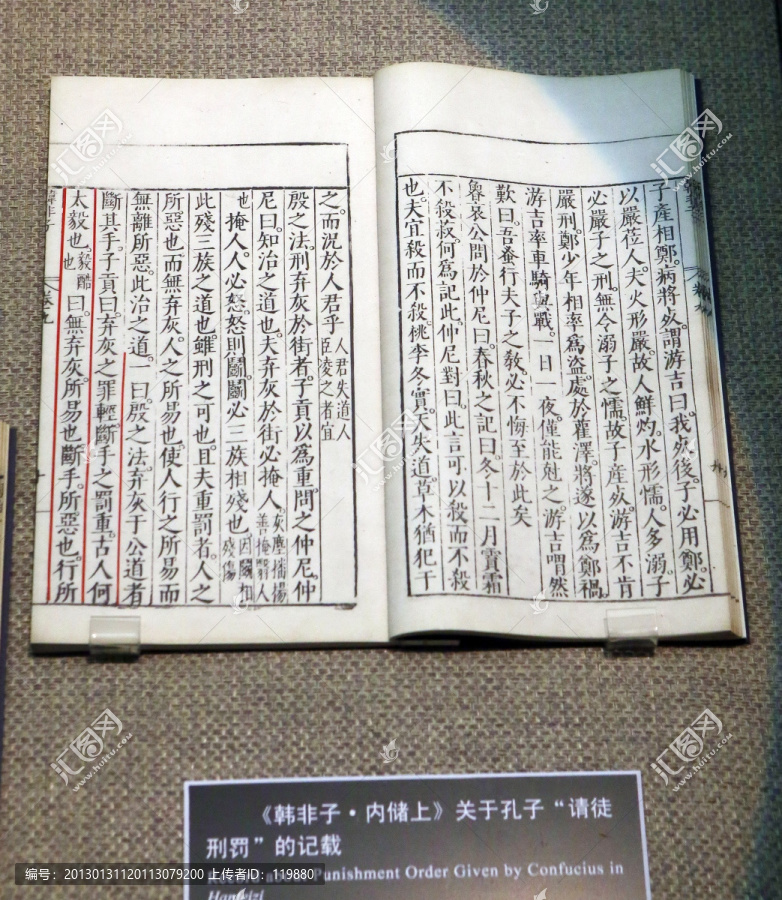 子產相鄭。病將死。謂游吉曰。我死後。子必用鄭。必
以嚴莅人。夫火形嚴。故人鮮灼。水形懦。人多溺。子
必嚴子之刑。無令溺子之懦。故子產死。游吉不肯
嚴刑。鄭少年相率爲盜。處於雚澤。將遂以爲鄭禍。
游吉率車騎與戰。一日一夜。僅能剋之。游吉喟然
歎曰。吾蚤行夫子之敎。必不悔至於此矣
魯哀公問於仲尼曰。春秋之記曰。冬十二月霣霜
不殺菽。何爲記此。仲尼對曰。此言可以殺而不殺
也。夫宜殺而不殺。桃李冬實。天失道。草木猶犯干
之。而況於人君乎 人君失道人臣凌之者宜
殷之法。刑弃灰於街者。子貢以爲重。問之仲尼。仲
尼曰。知治之道也。夫弃灰於街必掩人。灰塵播揚善掩翳人
也 掩人。人必怒。怒則鬭。鬭必三族相殘也。因鬭相殘傷
此殘三族之道也。雖刑之可也。且夫重罰者。人之
所惡也。而無弃灰。人之所易也。使人行之所易。而
無離所惡。此治之道。一曰。殷之法。弃灰于公道者
斷其手。子貢曰。弃灰之罪輕。斷手之罰重。古人何
太毅也。毅酷也 曰。無弃灰。所易也。斷手。所惡也。行所
《韩非子·内储上》关于孔子“请徒
刑罚”的记载
Punishment Order Given by Confucius in
Hanfeizi
编号：20130131120113079200 上传者ID：119880
汇图网
www.huitu.com